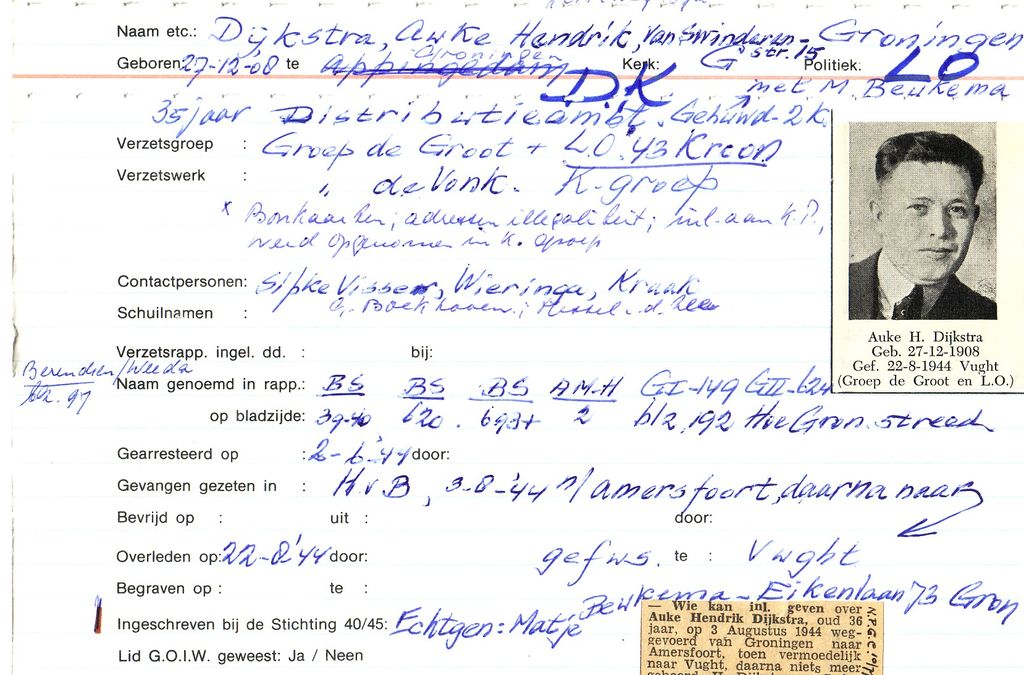 Naam etc.: Dijkstra, Auke Hendrik, van Swinderen- Groningen
str. 15
Groningen
Geboren: 27-12-08 te Appingedam Kerk: G Politiek: LO
DK met M. Beukema
35 jaar Distributieambt. Gehuwd - 2 K.
Verzetsgroep : Groep de Groot + L.O. '43 Kroon
Verzetswerk : " de Vonk. K-groep
x Bonkaarten, adressen illegaliteit; inl. aan K.P.,
werd opgenomen in K. groep
Contactpersonen: Sipke Visser, Wieringa, Kraak
G. Boekhoven;
Schuilnamen :
Verzetsrapp. ingel. dd. : bij:
Berendsen/Weeda
blz. 97
Naam genoemd in rapp.: BS BS BS AM-H GI-149 GII-624
op bladzijde: 39-40 620. 693+ 2 blz. 192 Hoe Gron. streed
Gearresteerd op : 2-6-'44 door:
Gevangen gezeten in : H.v.B, 3-8-'44 n/ amersfoort, daarna naar
Bevrijd op : uit : door:
Overleden op: 22-8-'44 door: gefus. te : Vught
Begraven op : te :
Ingeschreven bij de Stichting 40/45: Echtgen: Matje Beukema - Eikenlaan 73 Gron
Lid G.O.I.W. geweest: Ja / Neen
Auke H. Dijkstra
Geb. 27-12-1908
Gef. 22-8-1944 Vught
(Groep de Groot en L.O.)
— Wie kan inl. geven over
Auke Hendrik Dijkstra, oud 36
jaar, op 3 Augustus 1944 weg-
gevoerd van Groningen naar
Amersfoort, toen vermoedelijk
naar Vught, daarna niets meer